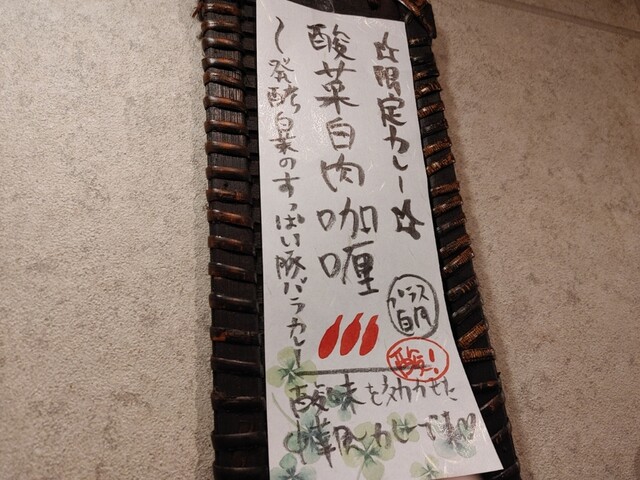 ☆限定カレー☆
酸菜白肉咖喱
〜発酵白菜のすっぱい豚バラカレー
酸!
酸味を効かせた
中華風カレーです♡